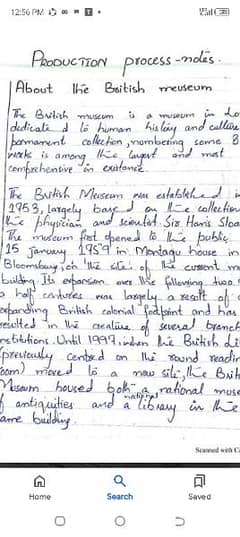 12:56 PM
PRODUCTION process-notes.
About the British meuseum
The British museum is a museum in Lo
dedicate d to human history and culture
permanent collection, numbering some 8
work is among the largest and most
comprehensive in existance
The British Museum was established i
1953, largely based on the collection
the physician and scientist Sir Hans Sloa
The museum first opened to the public
15 January 1959 in Montagu house in
Bloomsbury, on the site of the current m
building Its expansion over the following two
a half centuries was largely a result of
expanding British colonial footpoint and has
resulted in the creature of several branch
nstitutions. Until 1997, when the British Li
(previously centred on the round readin
oom) moved to a new site, the Brit
Museum housed both a national muse
f antiquities and a national library in the
ame building.
Scanned with C
Home Search Saved